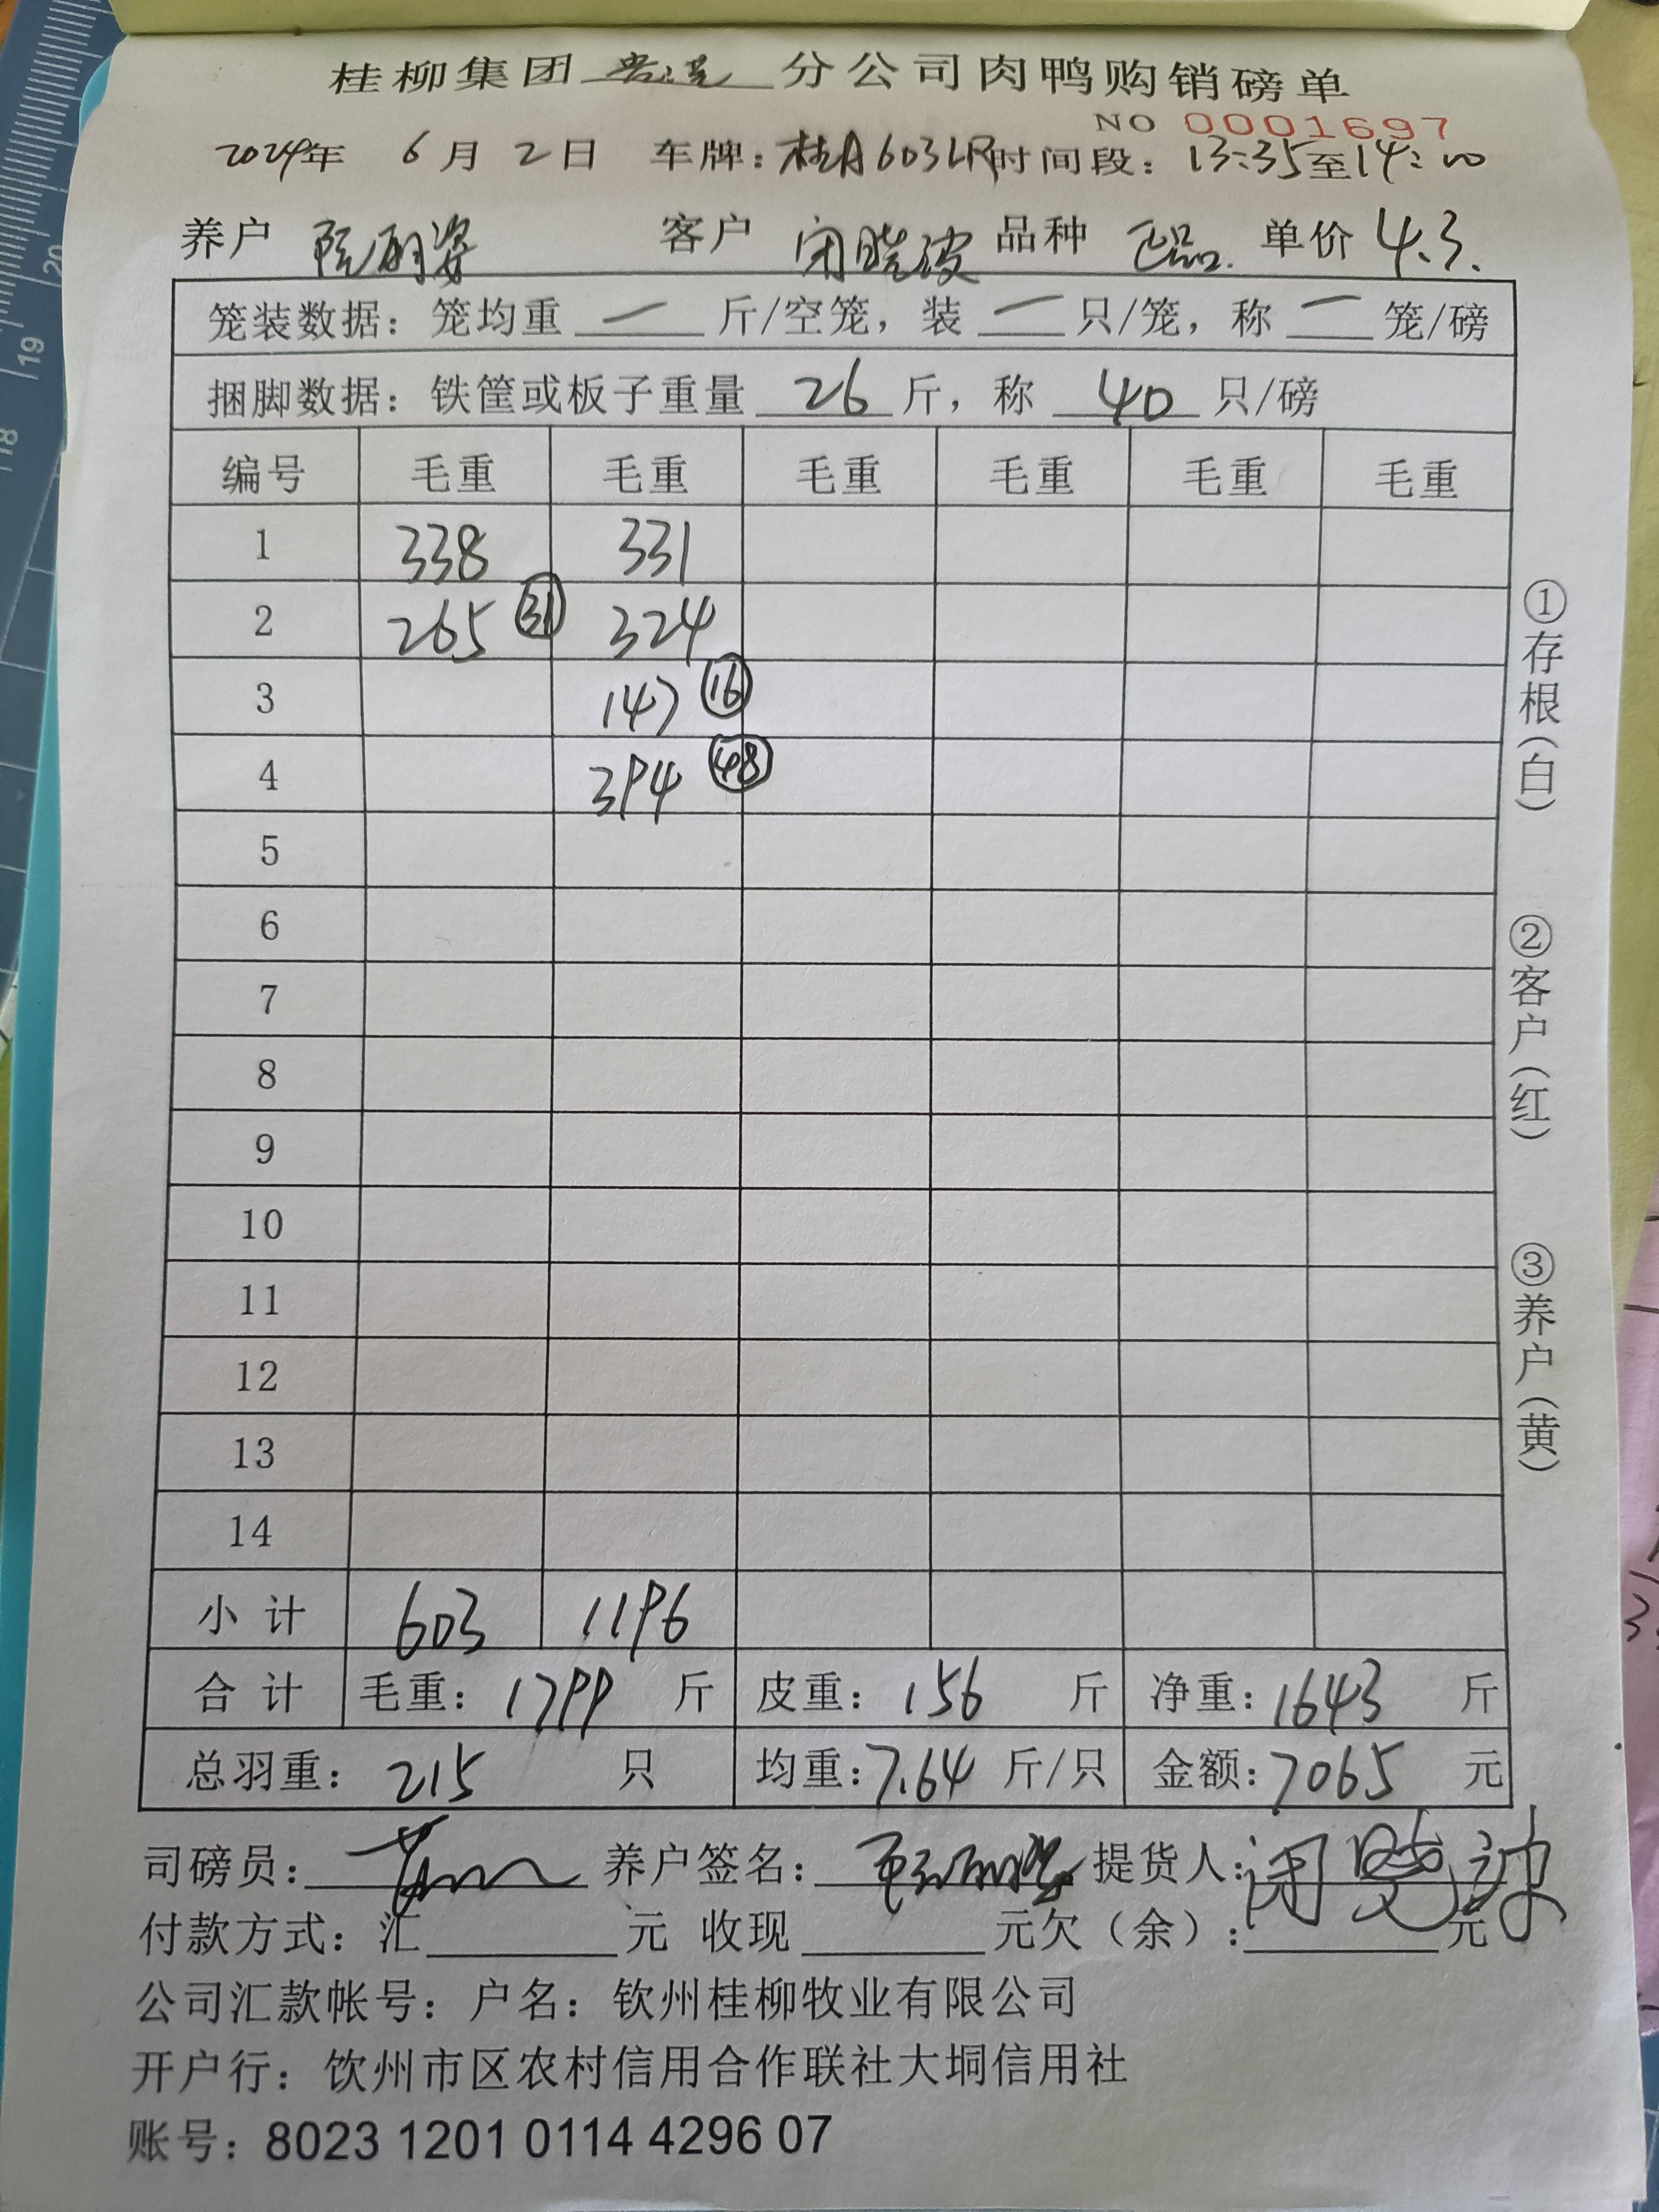 桂柳集团 分公司肉鸭购销磅单
NO 0001697
2024年 6月2日 车牌：桂A603LR 时间段：13:35至14:20
养户 阮丽姿 客户 闭晓波 品种 正品. 单价 4.3.
笼装数据：笼均重 一 斤/空笼，装 一 只/笼，称 一 笼/磅
捆脚数据：铁筐或板子重量 26 斤，称 40 只/磅
编号 毛重 毛重 毛重 毛重 毛重 毛重
1 338 331
2 265 ㉛ 324
3 147 ⑯
4 394 ㊽
5
6
7
8
9
10
11
12
13
14
小计 603 1196
合计 毛重：1799 斤 皮重：156 斤 净重：1643 斤
总羽重：215 只 均重：7.64 斤/只 金额：7065 元
司磅员： 养户签名： 提货人：闭晓波
付款方式：汇 元 收现 元欠（余）： 元
公司汇款帐号：户名：钦州桂柳牧业有限公司
开户行：饮州市区农村信用合作联社大垌信用社
账号：8023 1201 0114 4296 07
①存根（白）
②客户（红）
③养户（黄）